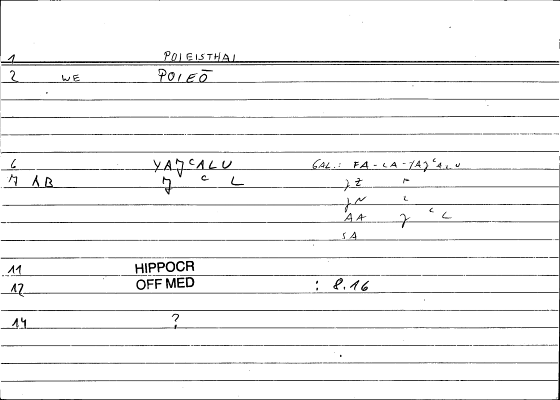 1 POIEISTHAI
2 WE POIEŌ
6 YAJᶜALU GAL.: FA-LA-YAJᶜALU
7 AB J ᶜ L JZ F
JN L
AA J ᶜ L
SA
11 HIPPOCR
12 OFF MED : 8.16
14 ?